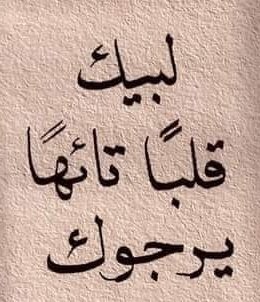 لبيك
قلبًا تائهًا
يرجوك